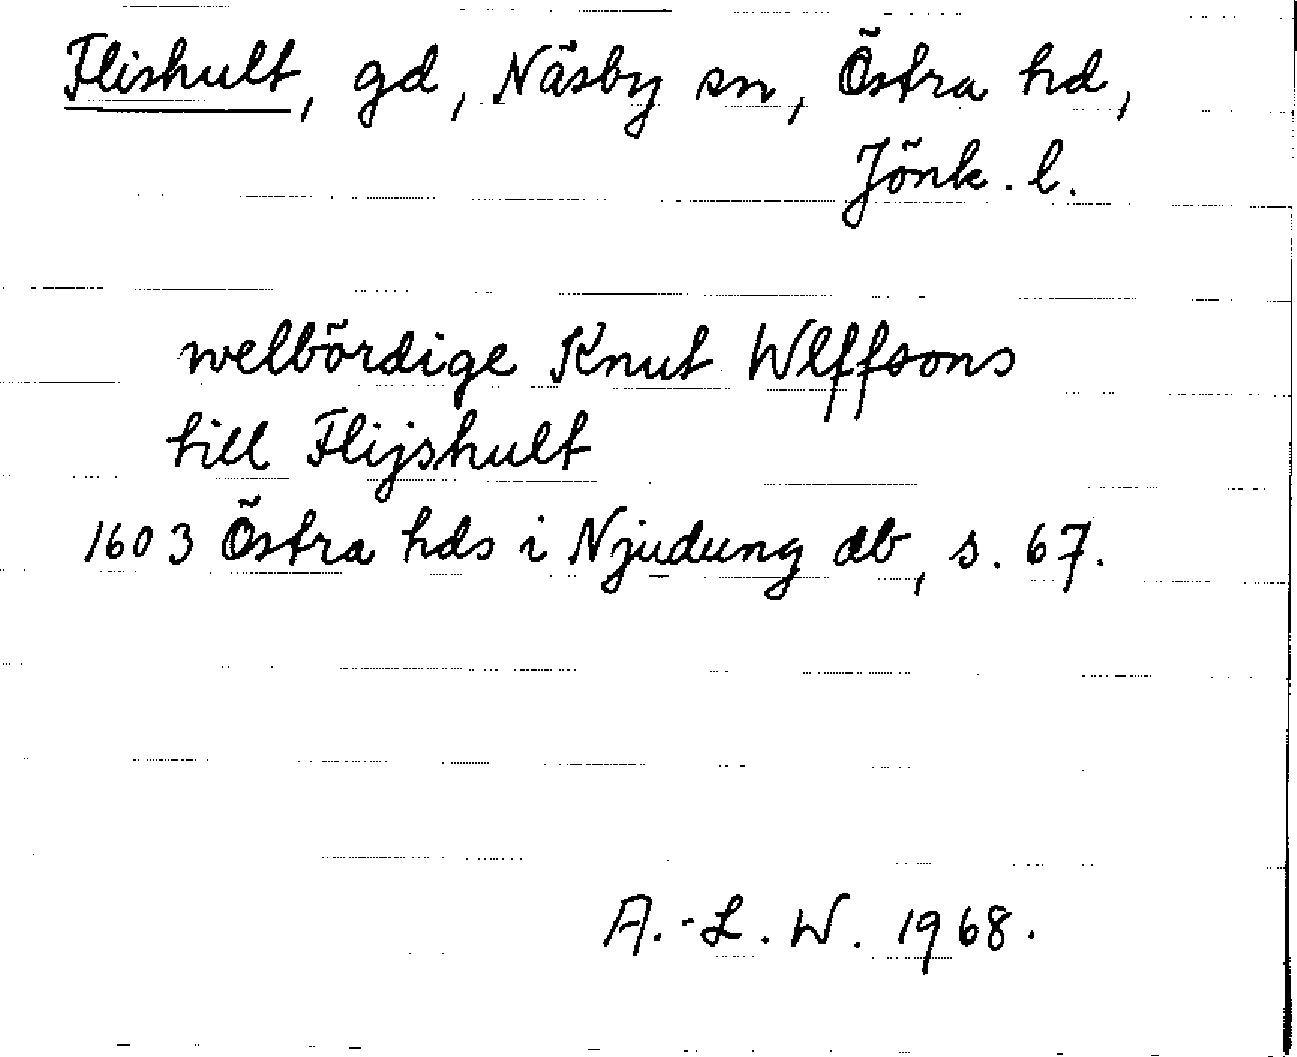 Flishult, gd, Näsby sn, Östra hd,
Jönk. l.
welbördige Knut Wlffsons
till Flijshult
1603 Östra hds i Njudung db, s. 67.
A.-L. W. 1968.